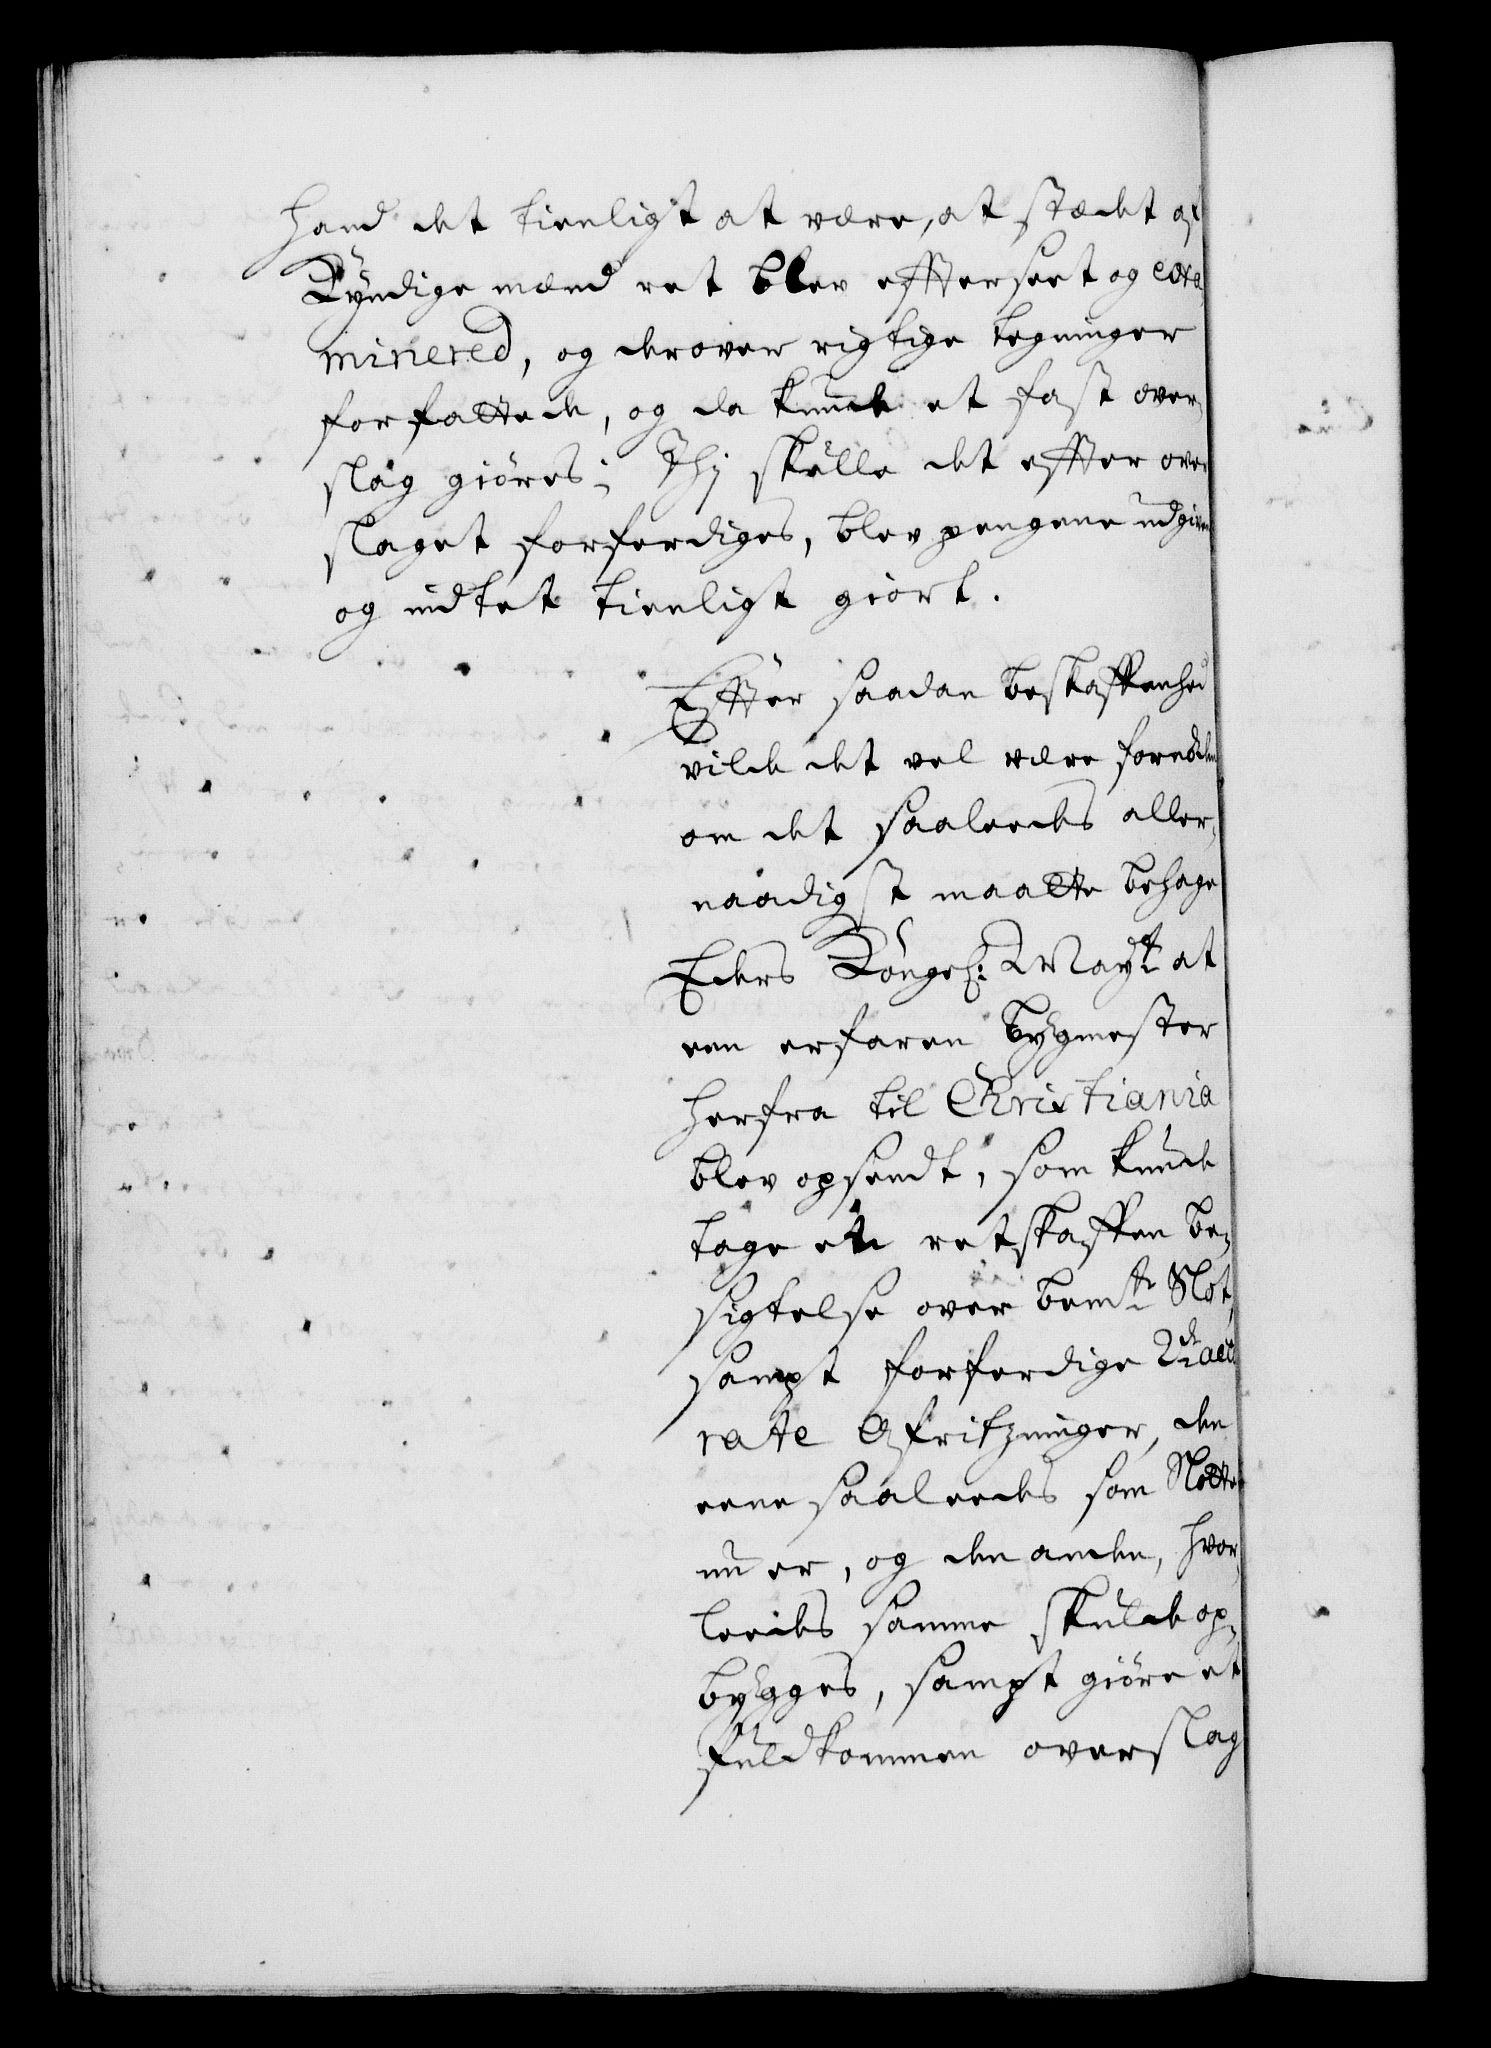 hand det tienligt at være, at stædet af
Kyndige mænd ret blev effterseet og exa
minered, og derover rigtige tegninger
forfattede, og da kunde et fast over,
slag giöres; Thj skulle det effter over
slaget forferdiges, blev pengene udgiven
og indtet tienligt giort.
Effter saadan beskaffenhed
vilde det vel være fornöden
om det saaleedes aller,
naadigst maatte behage
Eders Kongel: Mayt at
een erfaren bygmester
herfra til Christiania
blev opsendt, som kunde
tage en retskaffen be,
sigtelse over bemte Slot,
sampt forferdige 2de accu
rate Afritzninger, den
eene saaleedes som Slottet
nu er, og den anden, hvor,
leedes samme skulde op,
bygges, sampt giöre et
fuldkommen overslag